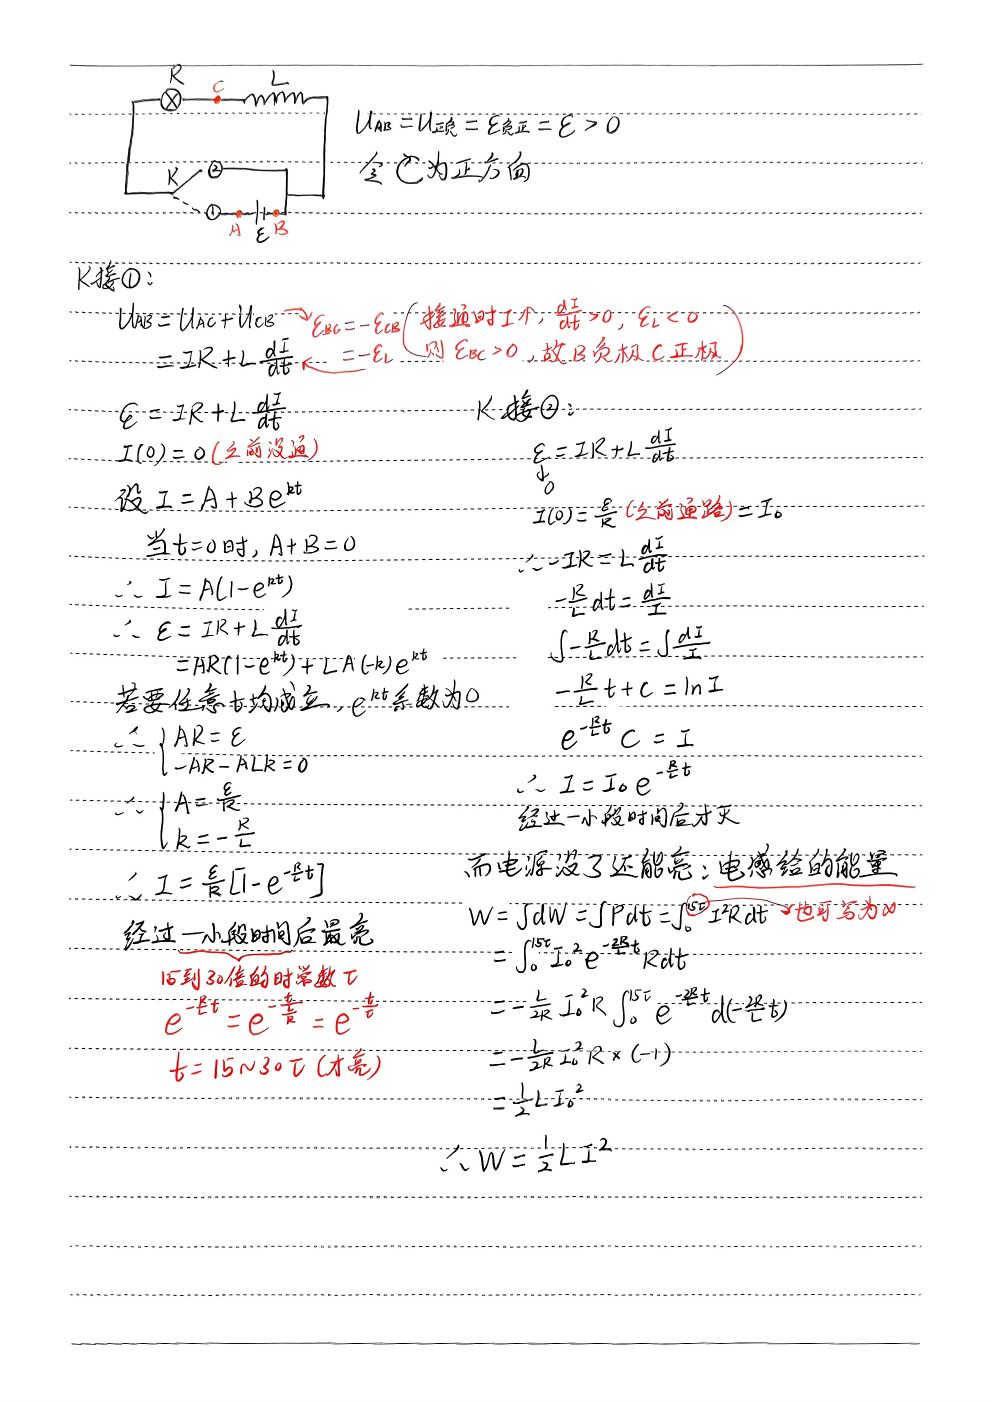 R
C
L
K
②
①
A
ε
B
U_AB = U_正负 = ε_负正 = ε > 0
令 ↻ 为正方向
K接①:
U_AB = U_AC + U_CB → ε_BC = -ε_CB (接通时I↑, dI/dt > 0, ε_L < 0
= IR + L dI/dt ← = -ε_L 则 ε_BC > 0, 故B负极C正极)
ε = IR + L dI/dt
I(0) = 0 (之前没通)
设 I = A + Be^kt
当t=0时, A+B=0
∴ I = A(1-e^kt)
∴ ε = IR + L dI/dt
= AR(1-e^kt) + LA(-k)e^kt
若要任意t均成立, e^kt系数为0
∴ { AR = ε
-AR - ALk = 0
∴ { A = ε/R
k = -R/L
∴ I = ε/R [1-e^(-R/L t)]
经过一小段时间后最亮
15到30倍的时常数τ
e^(-R/L t) = e^(-t/(L/R)) = e^(-t/τ)
t = 15~30τ (才亮)
K接②:
ε = IR + L dI/dt
↓
0
I(0) = ε/R (之前通路) = I₀
∴ -IR = L dI/dt
-R/L dt = dI/I
∫-R/L dt = ∫dI/I
-R/L t + C = lnI
e^(-R/L t) C = I
∴ I = I₀e^(-R/L t)
经过一小段时间后才灭
而电源没了还能亮: 电感给的能量
W = ∫dW = ∫Pdt = ∫₀^15τ I²Rdt → 也可写为∞
= ∫₀^15τ I₀²e^(-2R/L t) Rdt
= -L/2R I₀²R ∫₀^15τ e^(-2R/L t) d(-2R/L t)
= -L/2R I₀²R × (-1)
= 1/2 LI₀²
∴ W = 1/2 LI²